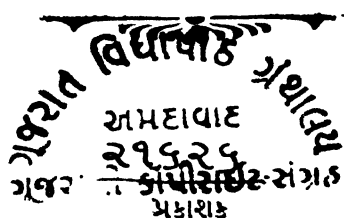 ગુજરાત વિદ્યાપીઠ ગ્રંથાલય
અમદાવાદ
૨૧૬૨૬
ગુજર કોપીરાઈટ-સંગ્રહ
પ્રકાશક